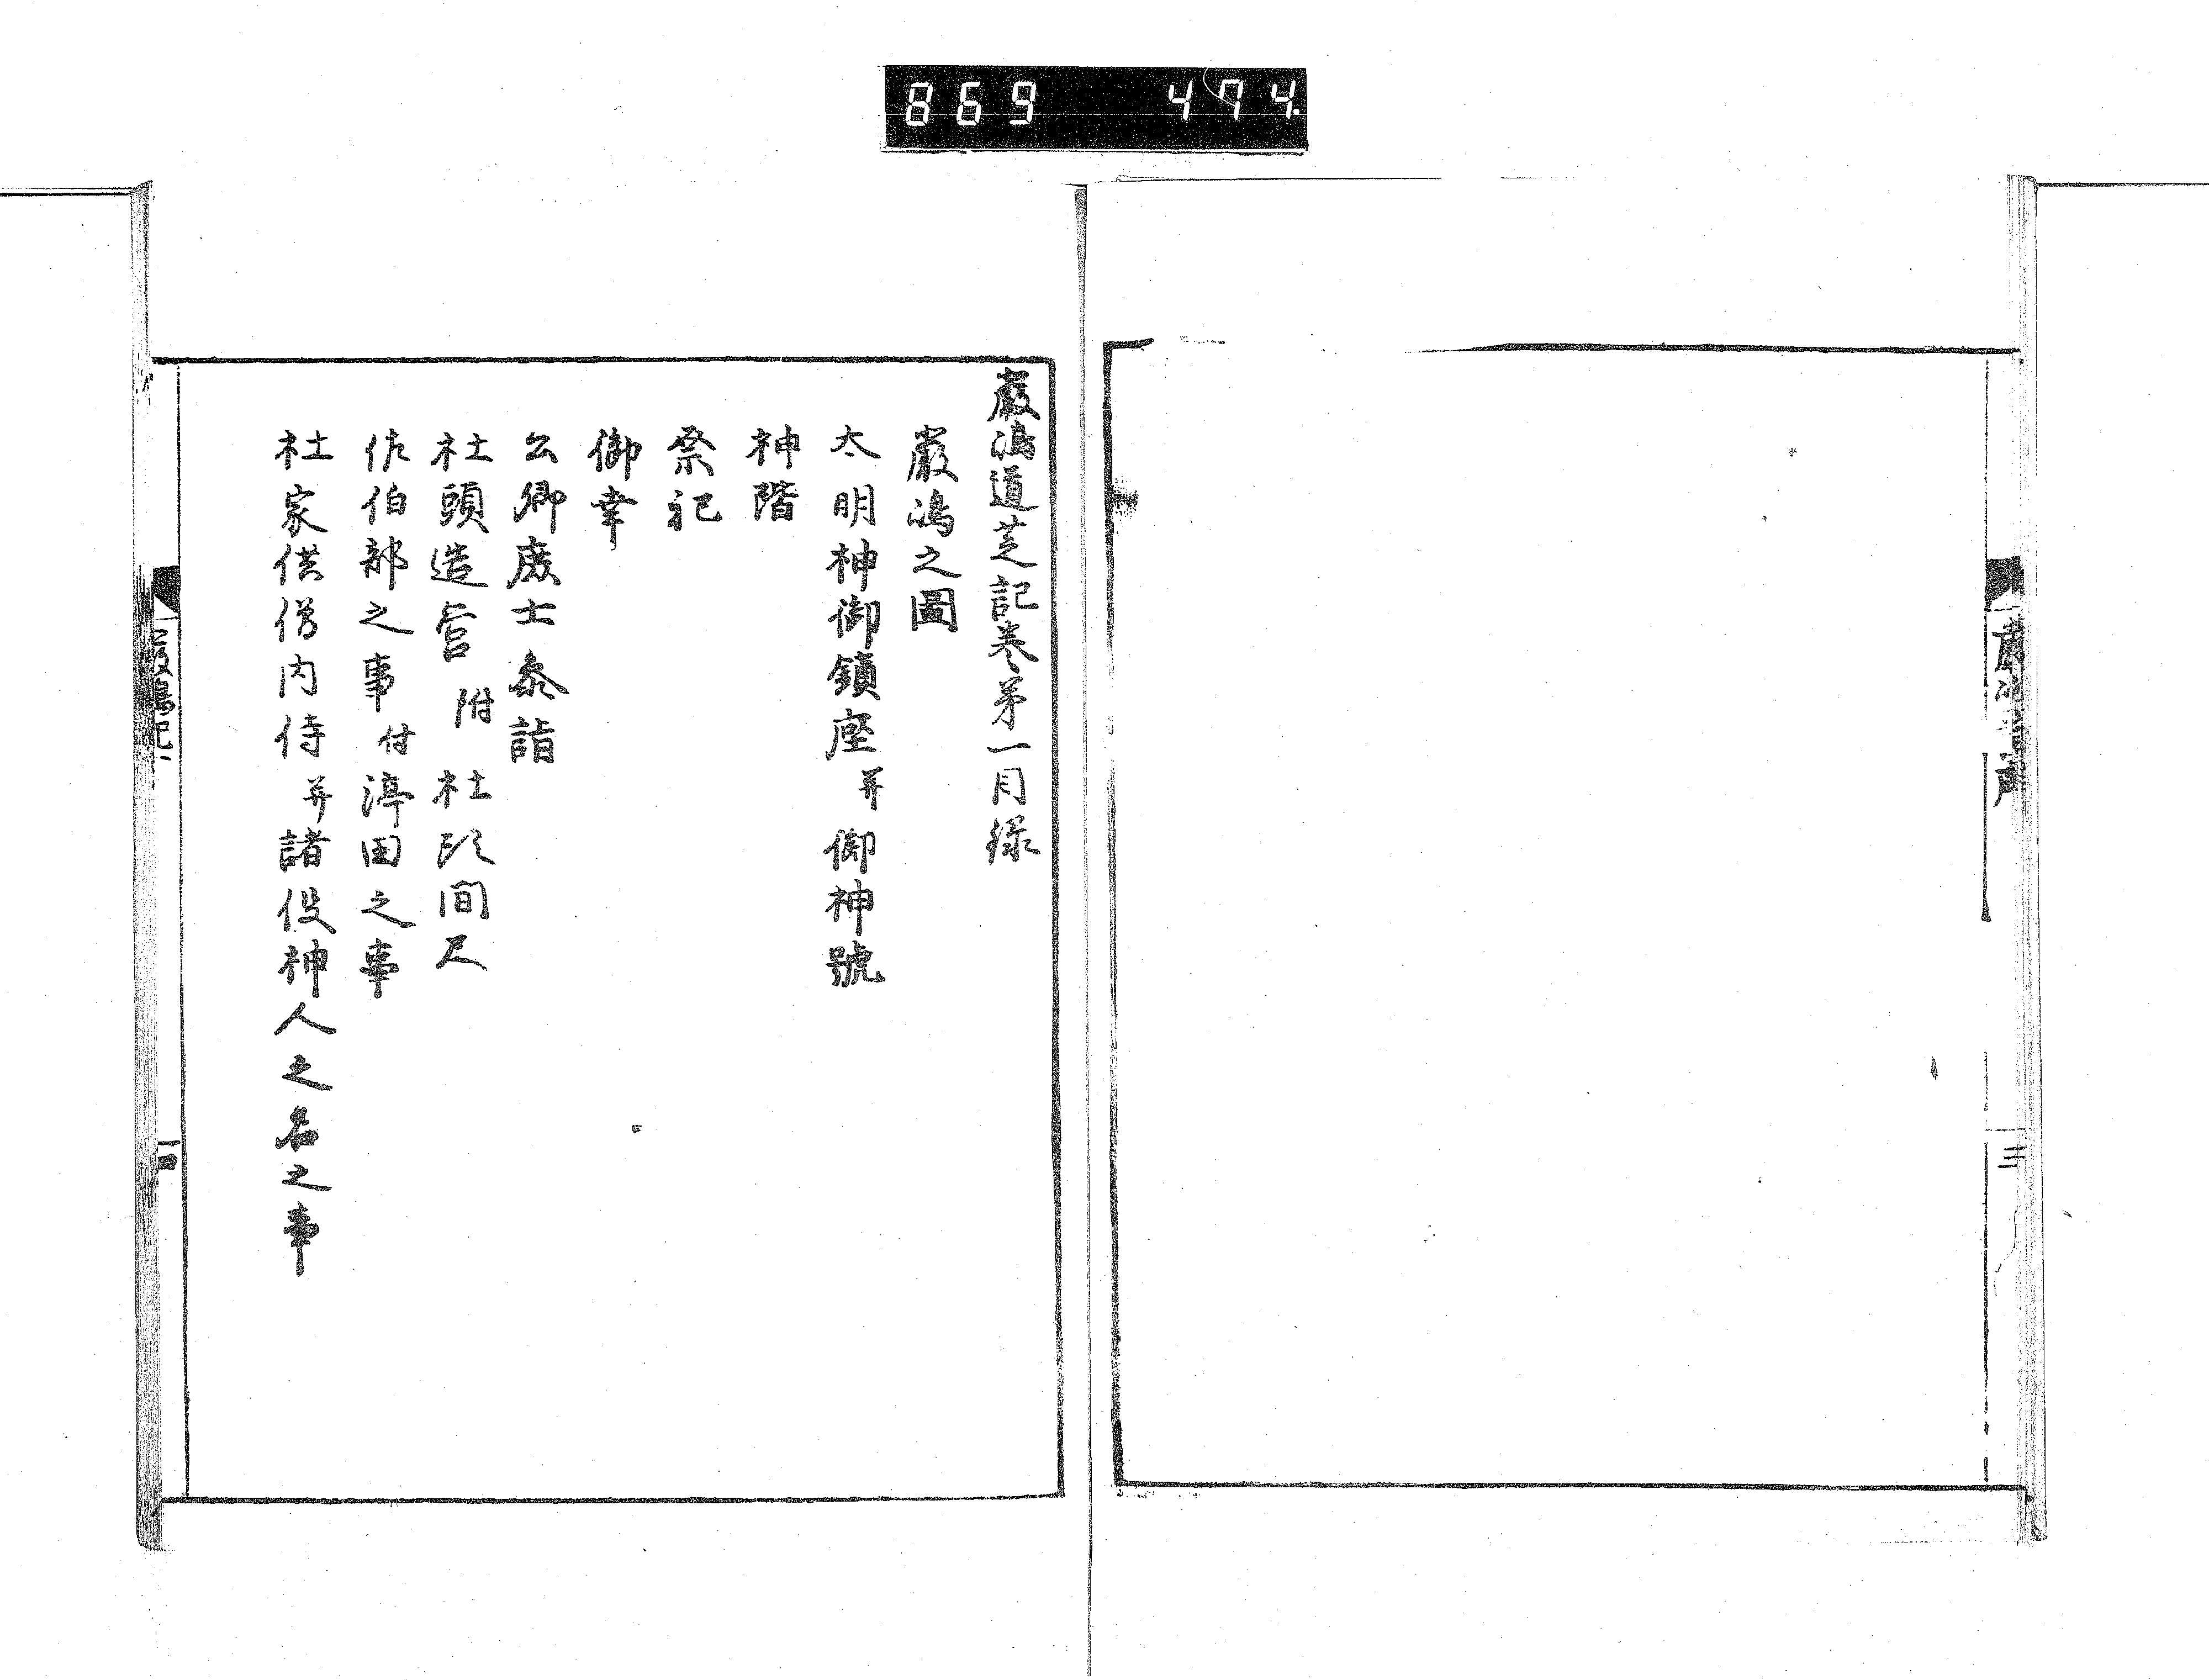 869 474
嚴嶋道芝記巻第一目録
嚴嶋之圖
太明神御鎮座并御神號
神階
祭祀
御幸
公卿武士参詣
社頭造営 附 社頭間尺
佐伯部之事 付 浄田之事
社家供僧内侍并諸役神人之名之事
三